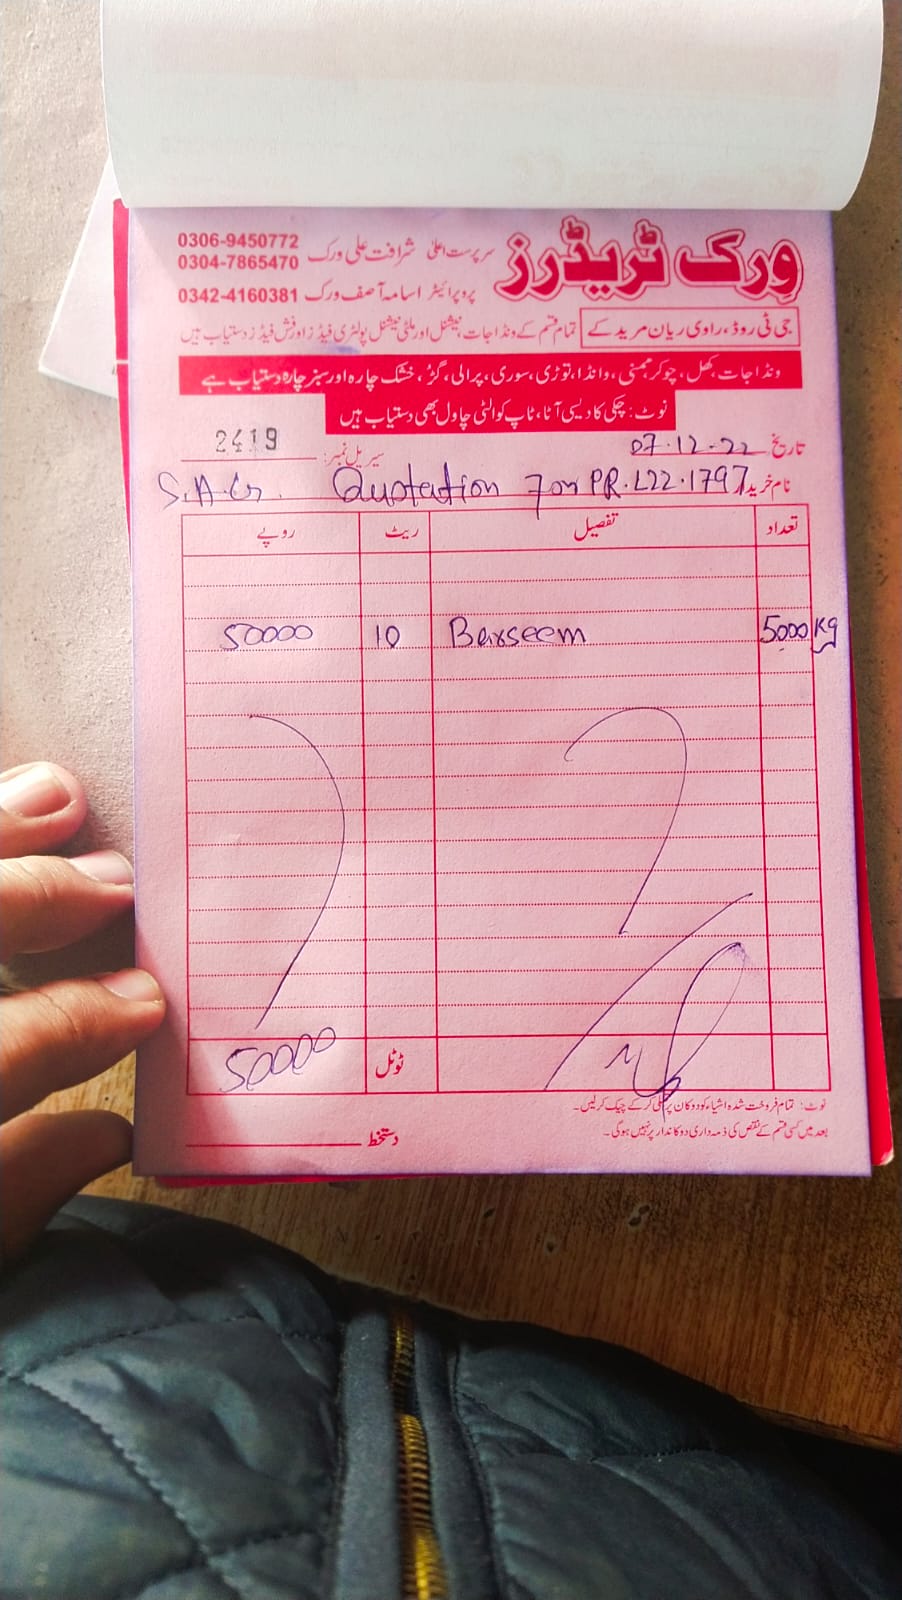 ورک ٹریڈرز
سرپرست اعلیٰ شرافت علی ورک 0306-9450772
0304-7865470
پروپرائیٹر اسامہ آصف ورک 0342-4160381
جی ٹی روڈ، راوی ریان مریدکے
تمام قسم کے ونڈا جات، نیشنل اور ملٹی نیشنل پولٹری فیڈز اور فش فیڈز دستیاب ہیں
ونڈا جات، کھل، چوکر، ممنی، وانڈا، توڑی، سوری، پرالی، گڑ، خشک چارہ اور سبز چارہ دستیاب ہے
نوٹ: چکی کا دیسی آٹا، ٹاپ کوالٹی چاول بھی دستیاب ہیں
تاریخ 07.12.22 سیریل نمبر: 2419
نام خریدار S.A.Gr. Quotation For PR.L22.1797
تعداد تفصیل ریٹ روپے
5000 Kg Barseem 10 50000
ٹوٹل 50000
نوٹ: تمام فروخت شدہ اشیاء کو دوکان پر تسلی کر کے چیک کر لیں۔
بعد میں کسی قسم کے نقص کی ذمہ داری دوکاندار پر نہیں ہوگی۔
دستخط